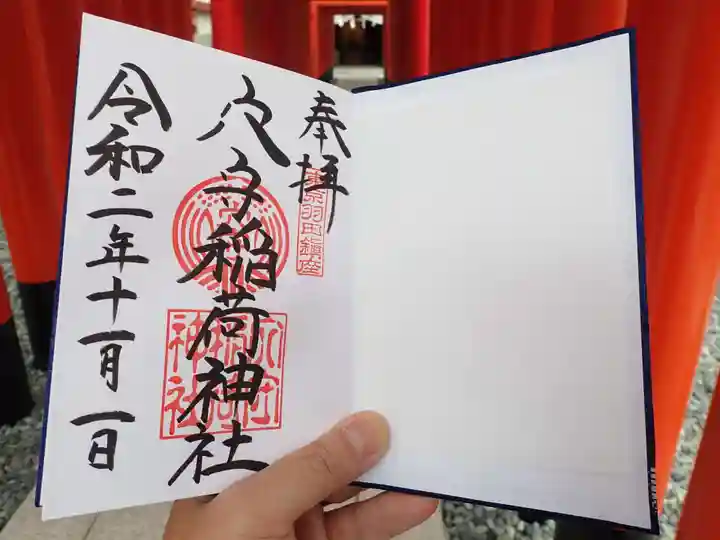 奉拝
東京羽田鎮座
穴守稲荷神社
穴守稲荷神社
令和二年十一月一日